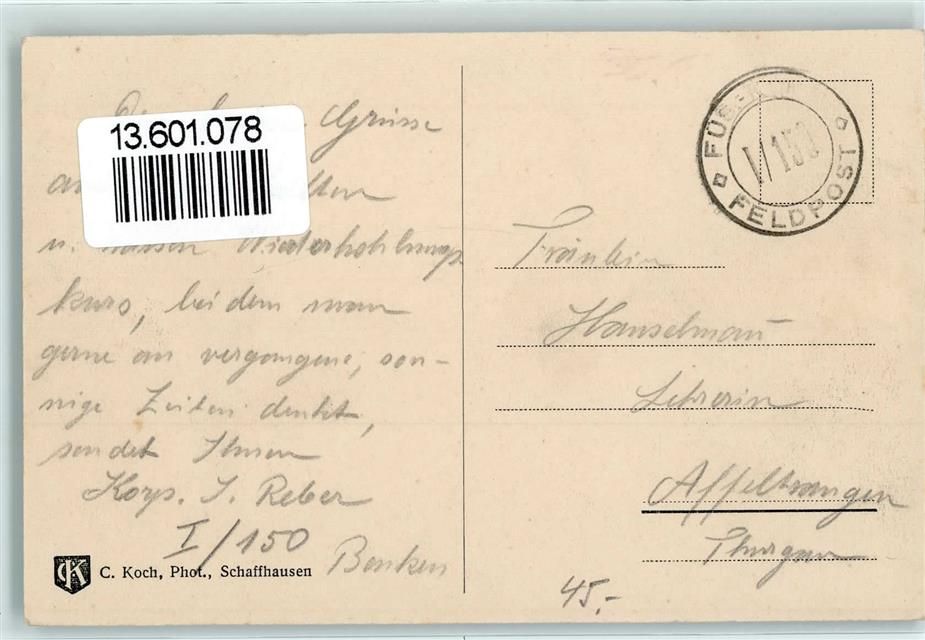 13.601.078
Grüsse
u. nassen Wiederhohlungs
kurs, bei dem man
gerne an vergangene, son-
nige Zeiten denkt,
sendet Ihnen
Korp. J. Reber
I/150
Benken
CK C. Koch, Phot., Schaffhausen
FELDPOST
Fräulein
Hanselmann
Lehrerin
Affeltrangen
Thurgau
45.-